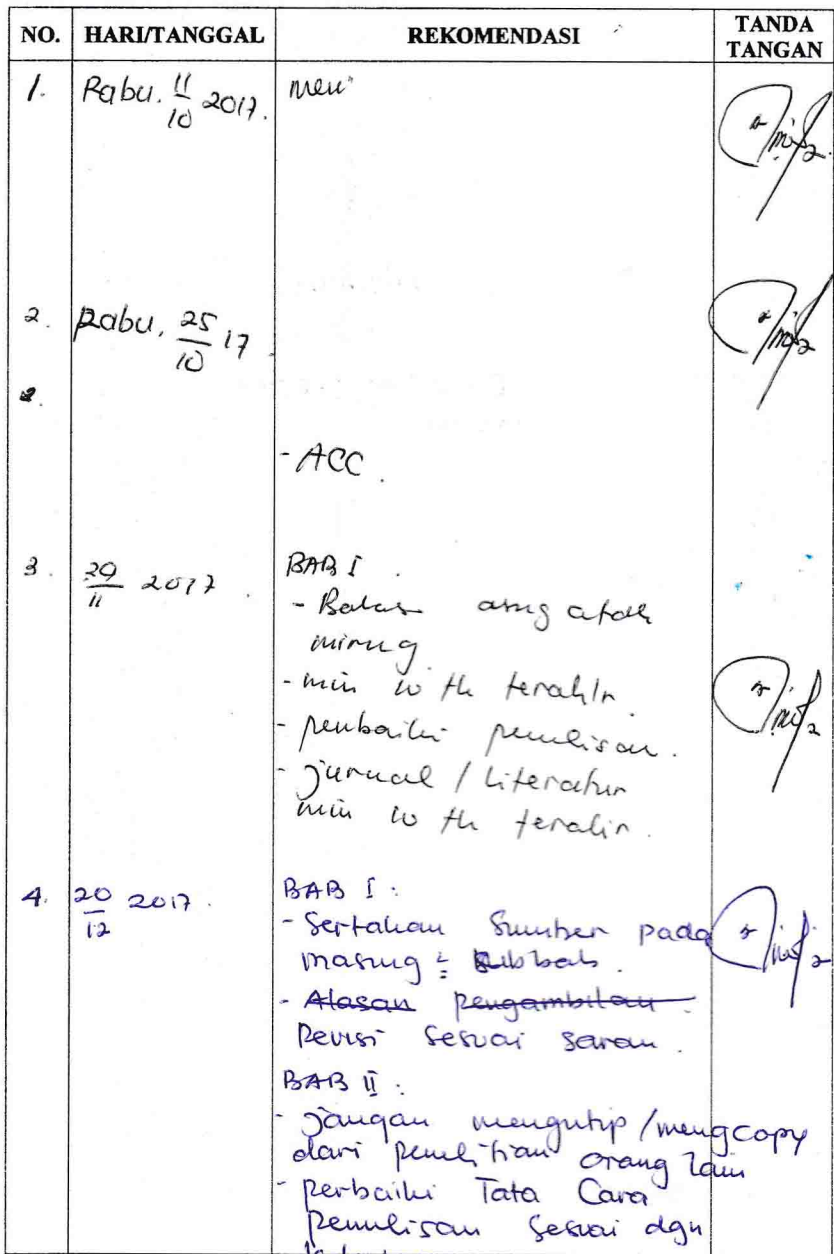 NO. HARI/TANGGAL REKOMENDASI TANDA TANGAN
1. Rabu. 11/10 2017. men"
2. Rabu. 25/10 17
2.
- ACC.
3. 29/11 2017 BAB I.
- Batas
- min 10 th terahir.
- perbaiki penulisan.
- jurnal / Literatur
min 10 th terahir.
4. 20/12 2017. BAB I :
- Sertakan Sumber pada
masing2 subbab.
- Alasan pengambilan
Revisi sesuai saran.
BAB II :
- jangan mengutip/mengcopy
dari penelitian orang lain
- perbaiki Tata Cara
penulisan sesuai dgn